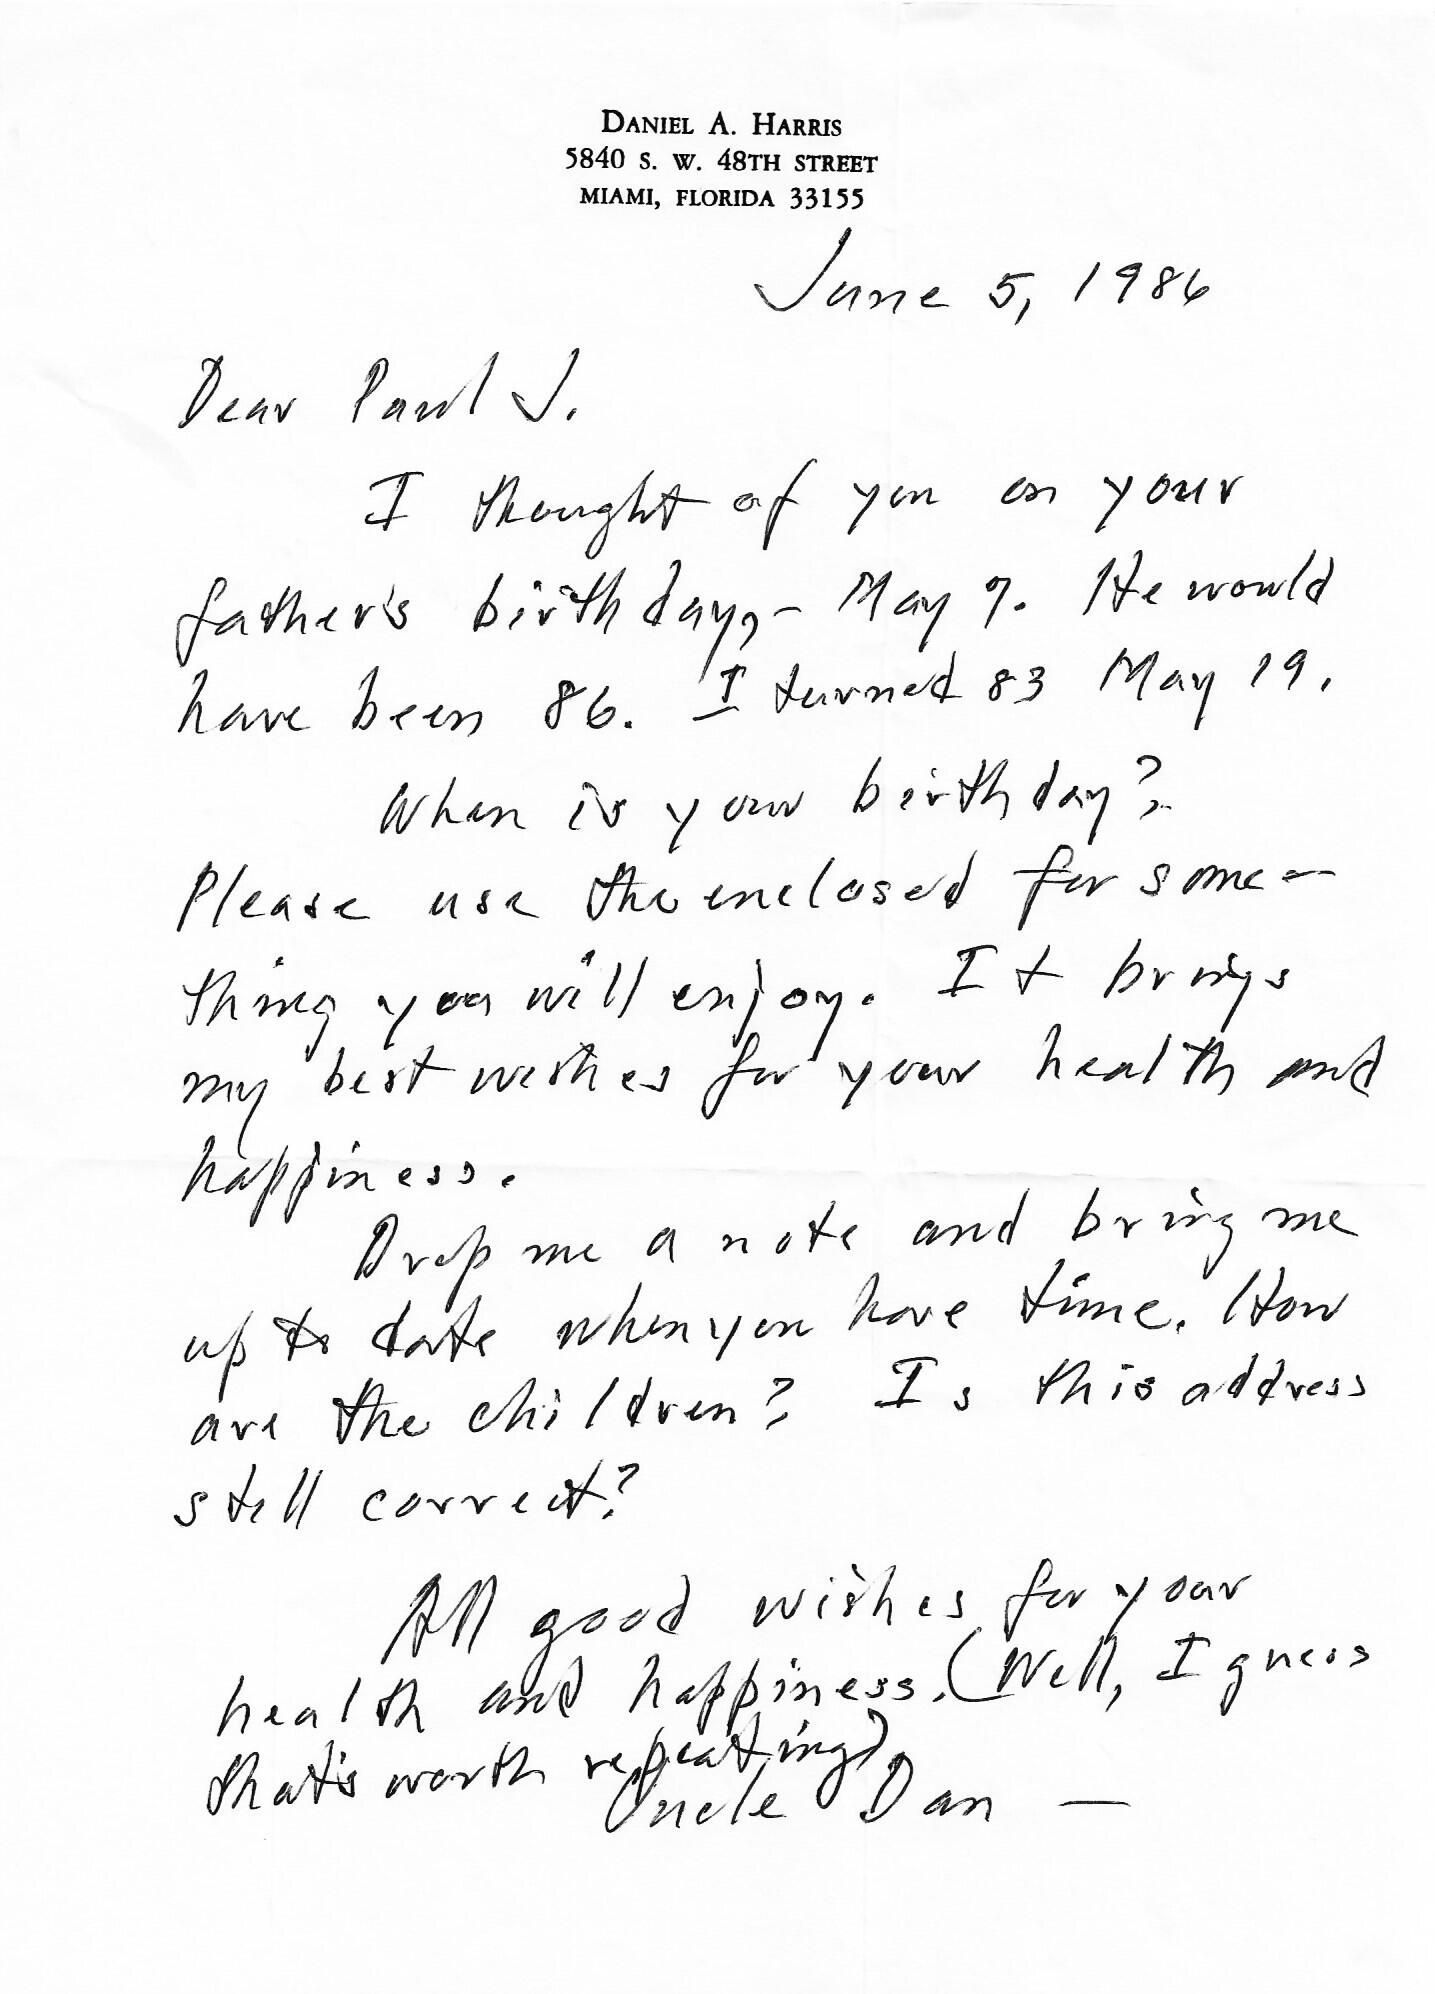 DANIEL A. HARRIS
5840 S. W. 48TH STREET
MIAMI, FLORIDA 33155
June 5, 1986
Dear Paul J.
I thought of you on your
father's birthday, - May 7. He would
have been 86. I turned 83 May 19.
When is your birthday?
Please use the enclosed for some-
thing you will enjoy. It brings
my best wishes for your health and
happiness.
Drop me a note and bring me
up to date when you have time. How
are the children? Is this address
still correct?
All good wishes for your
health and happiness. (Well, I guess
that's worth repeating)
Uncle Dan —